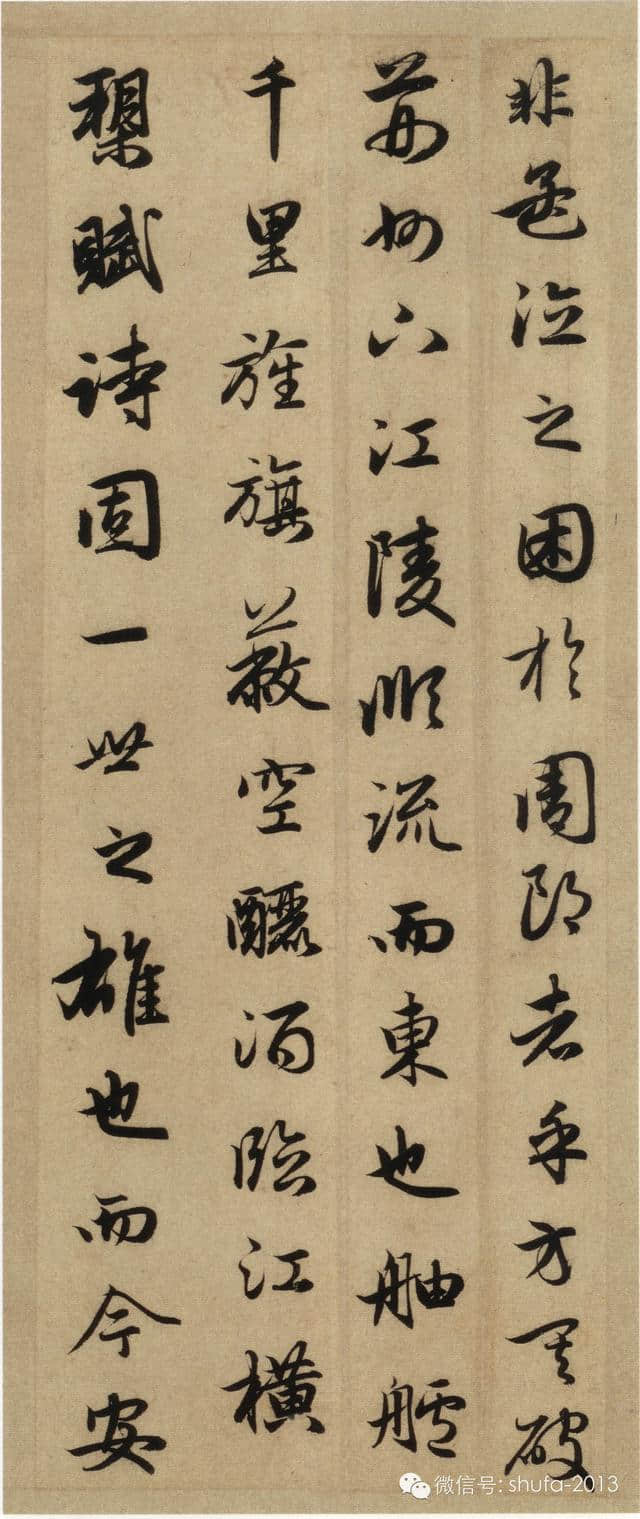 非孟德之困於周郎者乎方其破
荊州下江陵順流而東也舳艫
千里旌旗蔽空釃酒臨江橫
槊賦詩固一世之雄也而今安
微信号: shufa-2013